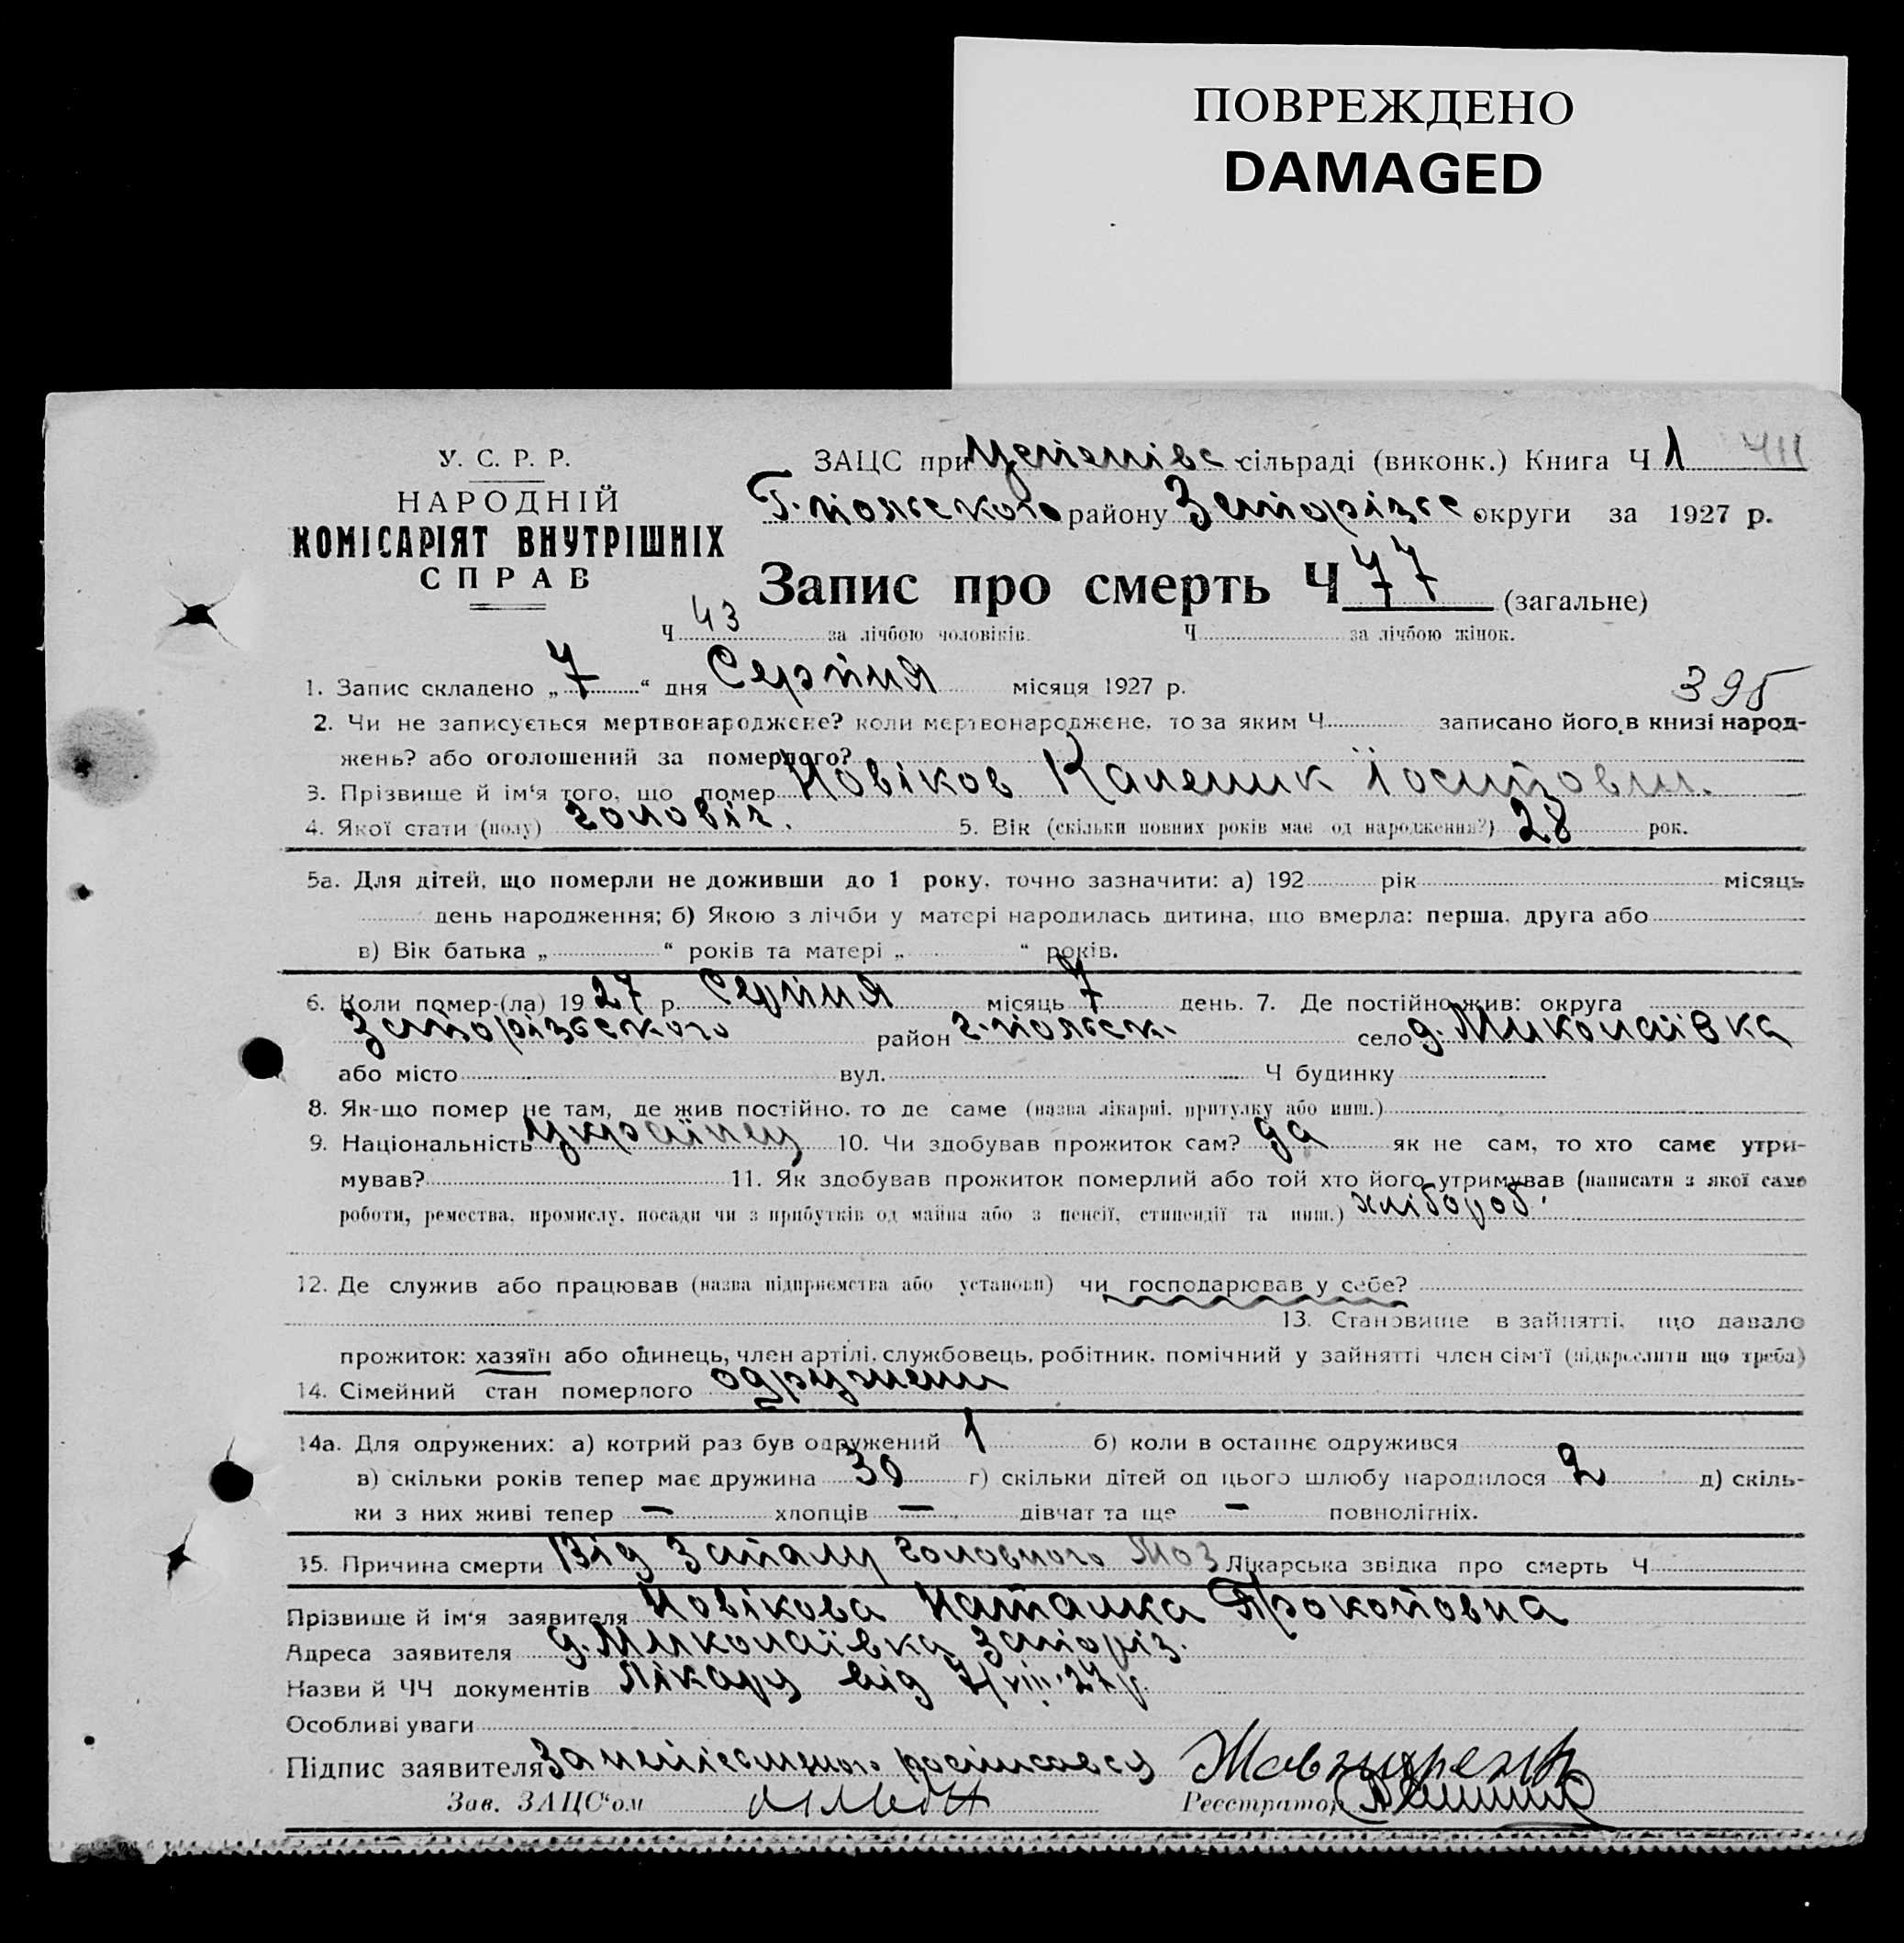 ПОВРЕЖДЕНО
DAMAGED
У. С. Р. Р.
НАРОДНІЙ
КОМІСАРІЯТ ВНУТРІШНІХ
СПРАВ
ЗАЦС при Успенівс сільраді (виконк.) Книга Ч 1 411
Г.-польского району Запоріжс округи за 1927 р.
Запис про смерть Ч 77 (загальне)
Ч 43 за лічбою чоловіків. Ч за лічбою жінок.
1. Запис складено „ 7 “ дня Серпня місяця 1927 р. 395
2. Чи не записується мертвонароджене? коли мертвонароджене, то за яким Ч записано його в книзі народ-
жень? або оголошений за померлого?
3. Прізвище й ім'я того, що помер Новіков Калени́к Іосипови.
4. Якої стати (полу) чоловіч. 5. Вік (скільки повних років має од народження?) 28 рок.
5а. Для дітей, що померли не доживши до 1 року, точно зазначити: а) 192 рік місяць
день народження; б) Якою з лічби у матері народилась дитина, що вмерла: перша, друга або
в) Вік батька „ “ років та матері „ “ років.
6. Коли помер-(ла) 1927 р. Серпня місяць 7 день. 7. Де постійно жив: округа
Запорізьского район г.-польск. село д. Миколаївка
або місто вул. Ч будинку
8. Як-що помер не там, де жив постійно, то де саме (назва лікарні, притулку або инш.)
9. Національність українец 10. Чи здобував прожиток сам? да як не сам, то хто саме утри-
мував? 11. Як здобував прожиток померлий або той хто його утримував (написати з якої само
роботи, ремества, промислу, посади чи з прибутків од майна або з пенсії, стипендії та инш.) хлібороб.
12. Де служив або працював (назва підприємства або установи) чи господарював у себе?
13. Становище в зайнятті, що давало
прожиток: хазяїн або одинець, член артілі, службовець, робітник, помічний у зайнятті член сім'ї (підкреслити що треба)
14. Сімейний стан померлого
14а. Для одружених: а) котрий раз був одружений 1 б) коли в останнє одружився
в) скільки років тепер має дружина 30 г) скільки дітей од цього шлюбу народилося 2 д) скіль-
ки з них живі тепер — хлопців — дівчат та ще — повнолітніх.
15. Причина смерти Від запалу головного Моз Лікарська звідка про смерть Ч
Прізвище й ім'я заявителя Новікова Наталка Прокоповна
Адреса заявителя д. Миколаївка Запоріз.
Назви й ЧЧ документів Лікару від 7/VIII. 27 р.
Особливі уваги
Підпис заявителя За неписменого росписався
Зав. ЗАЦС'ом Реєстратор